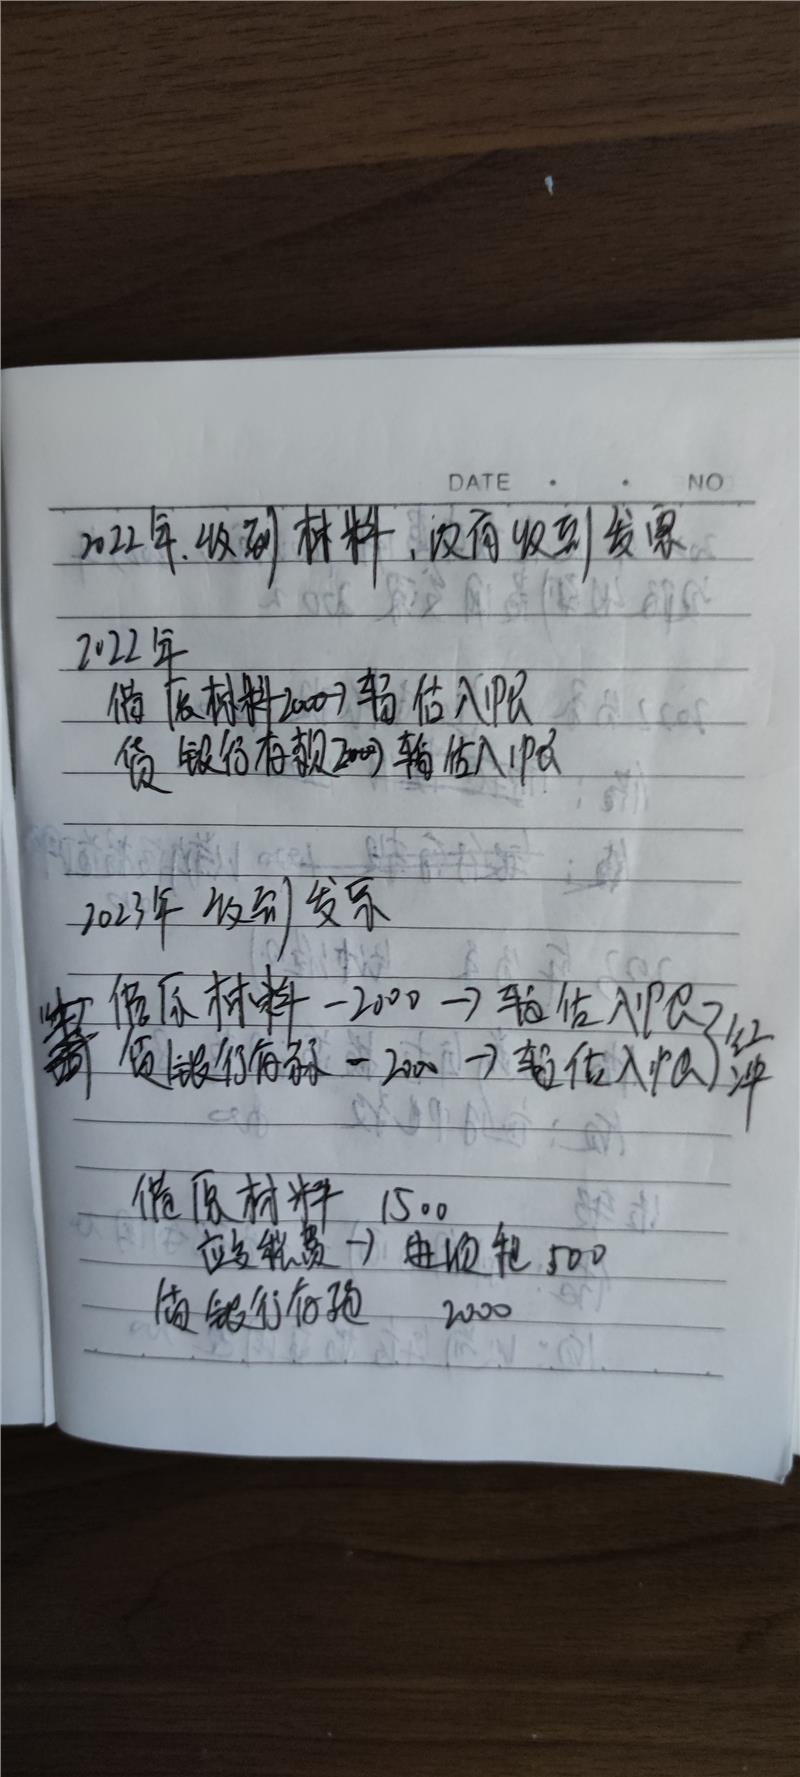 DATE · · NO
2022年.收到材料,没有收到发票
2022年
借原材料2000→暂估入库
贷银行存款2000→暂估入库
2023年收到发票
借原材料-2000→暂估入库
贷银行存款-2000→暂估入库
红冲
借原材料 1500
应交税费→进项税500
贷银行存款 2000